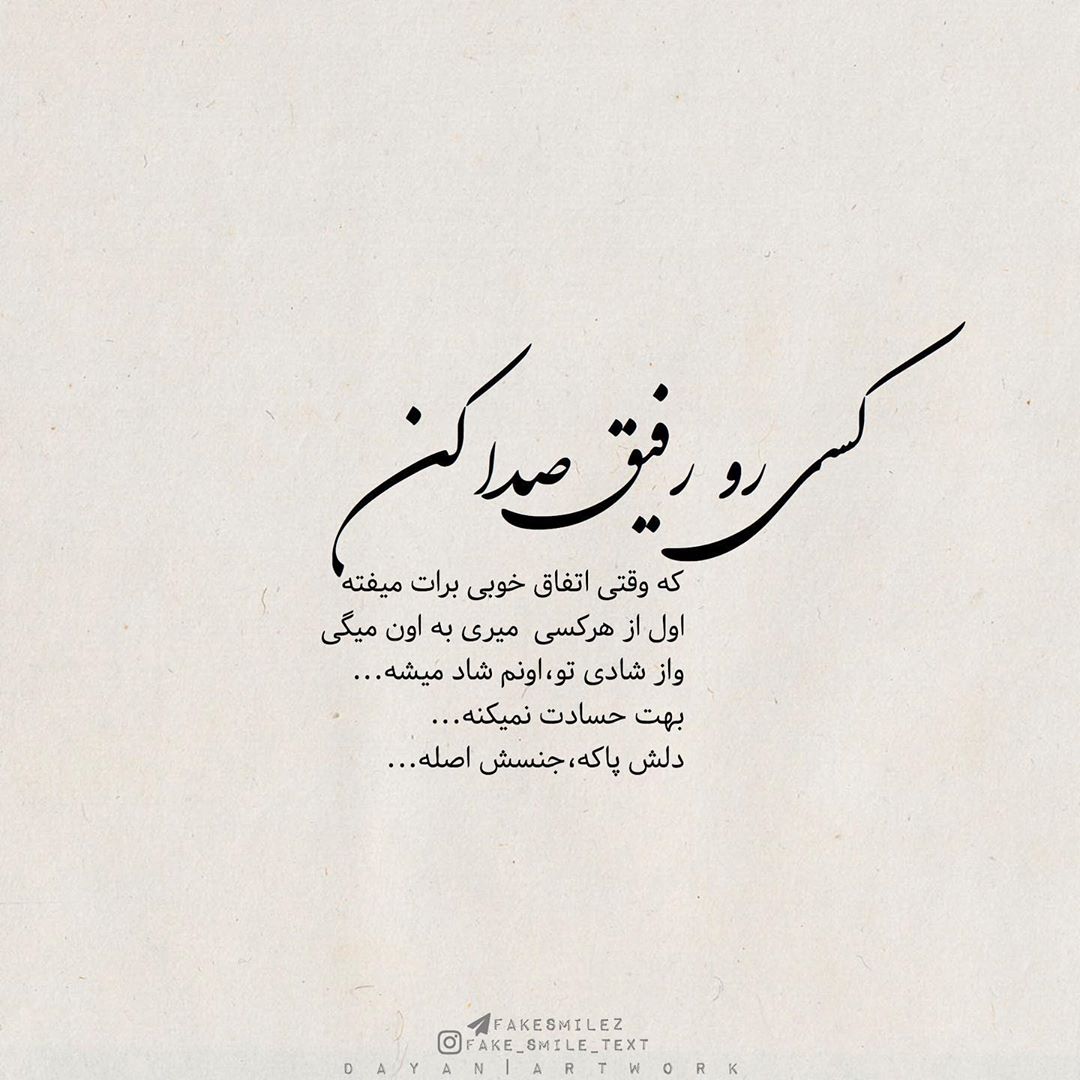 کسی رو رفیق صدا کن
که وقتی اتفاق خوبی برات میفته
اول از هرکسی میری به اون میگی
واز شادی تو،اونم شاد میشه...
بهت حسادت نمیکنه...
دلش پاکه،جنسش اصله...
FAKESMILEZ
FAKE_SMILE_TEXT
DAYAN|ARTWORK